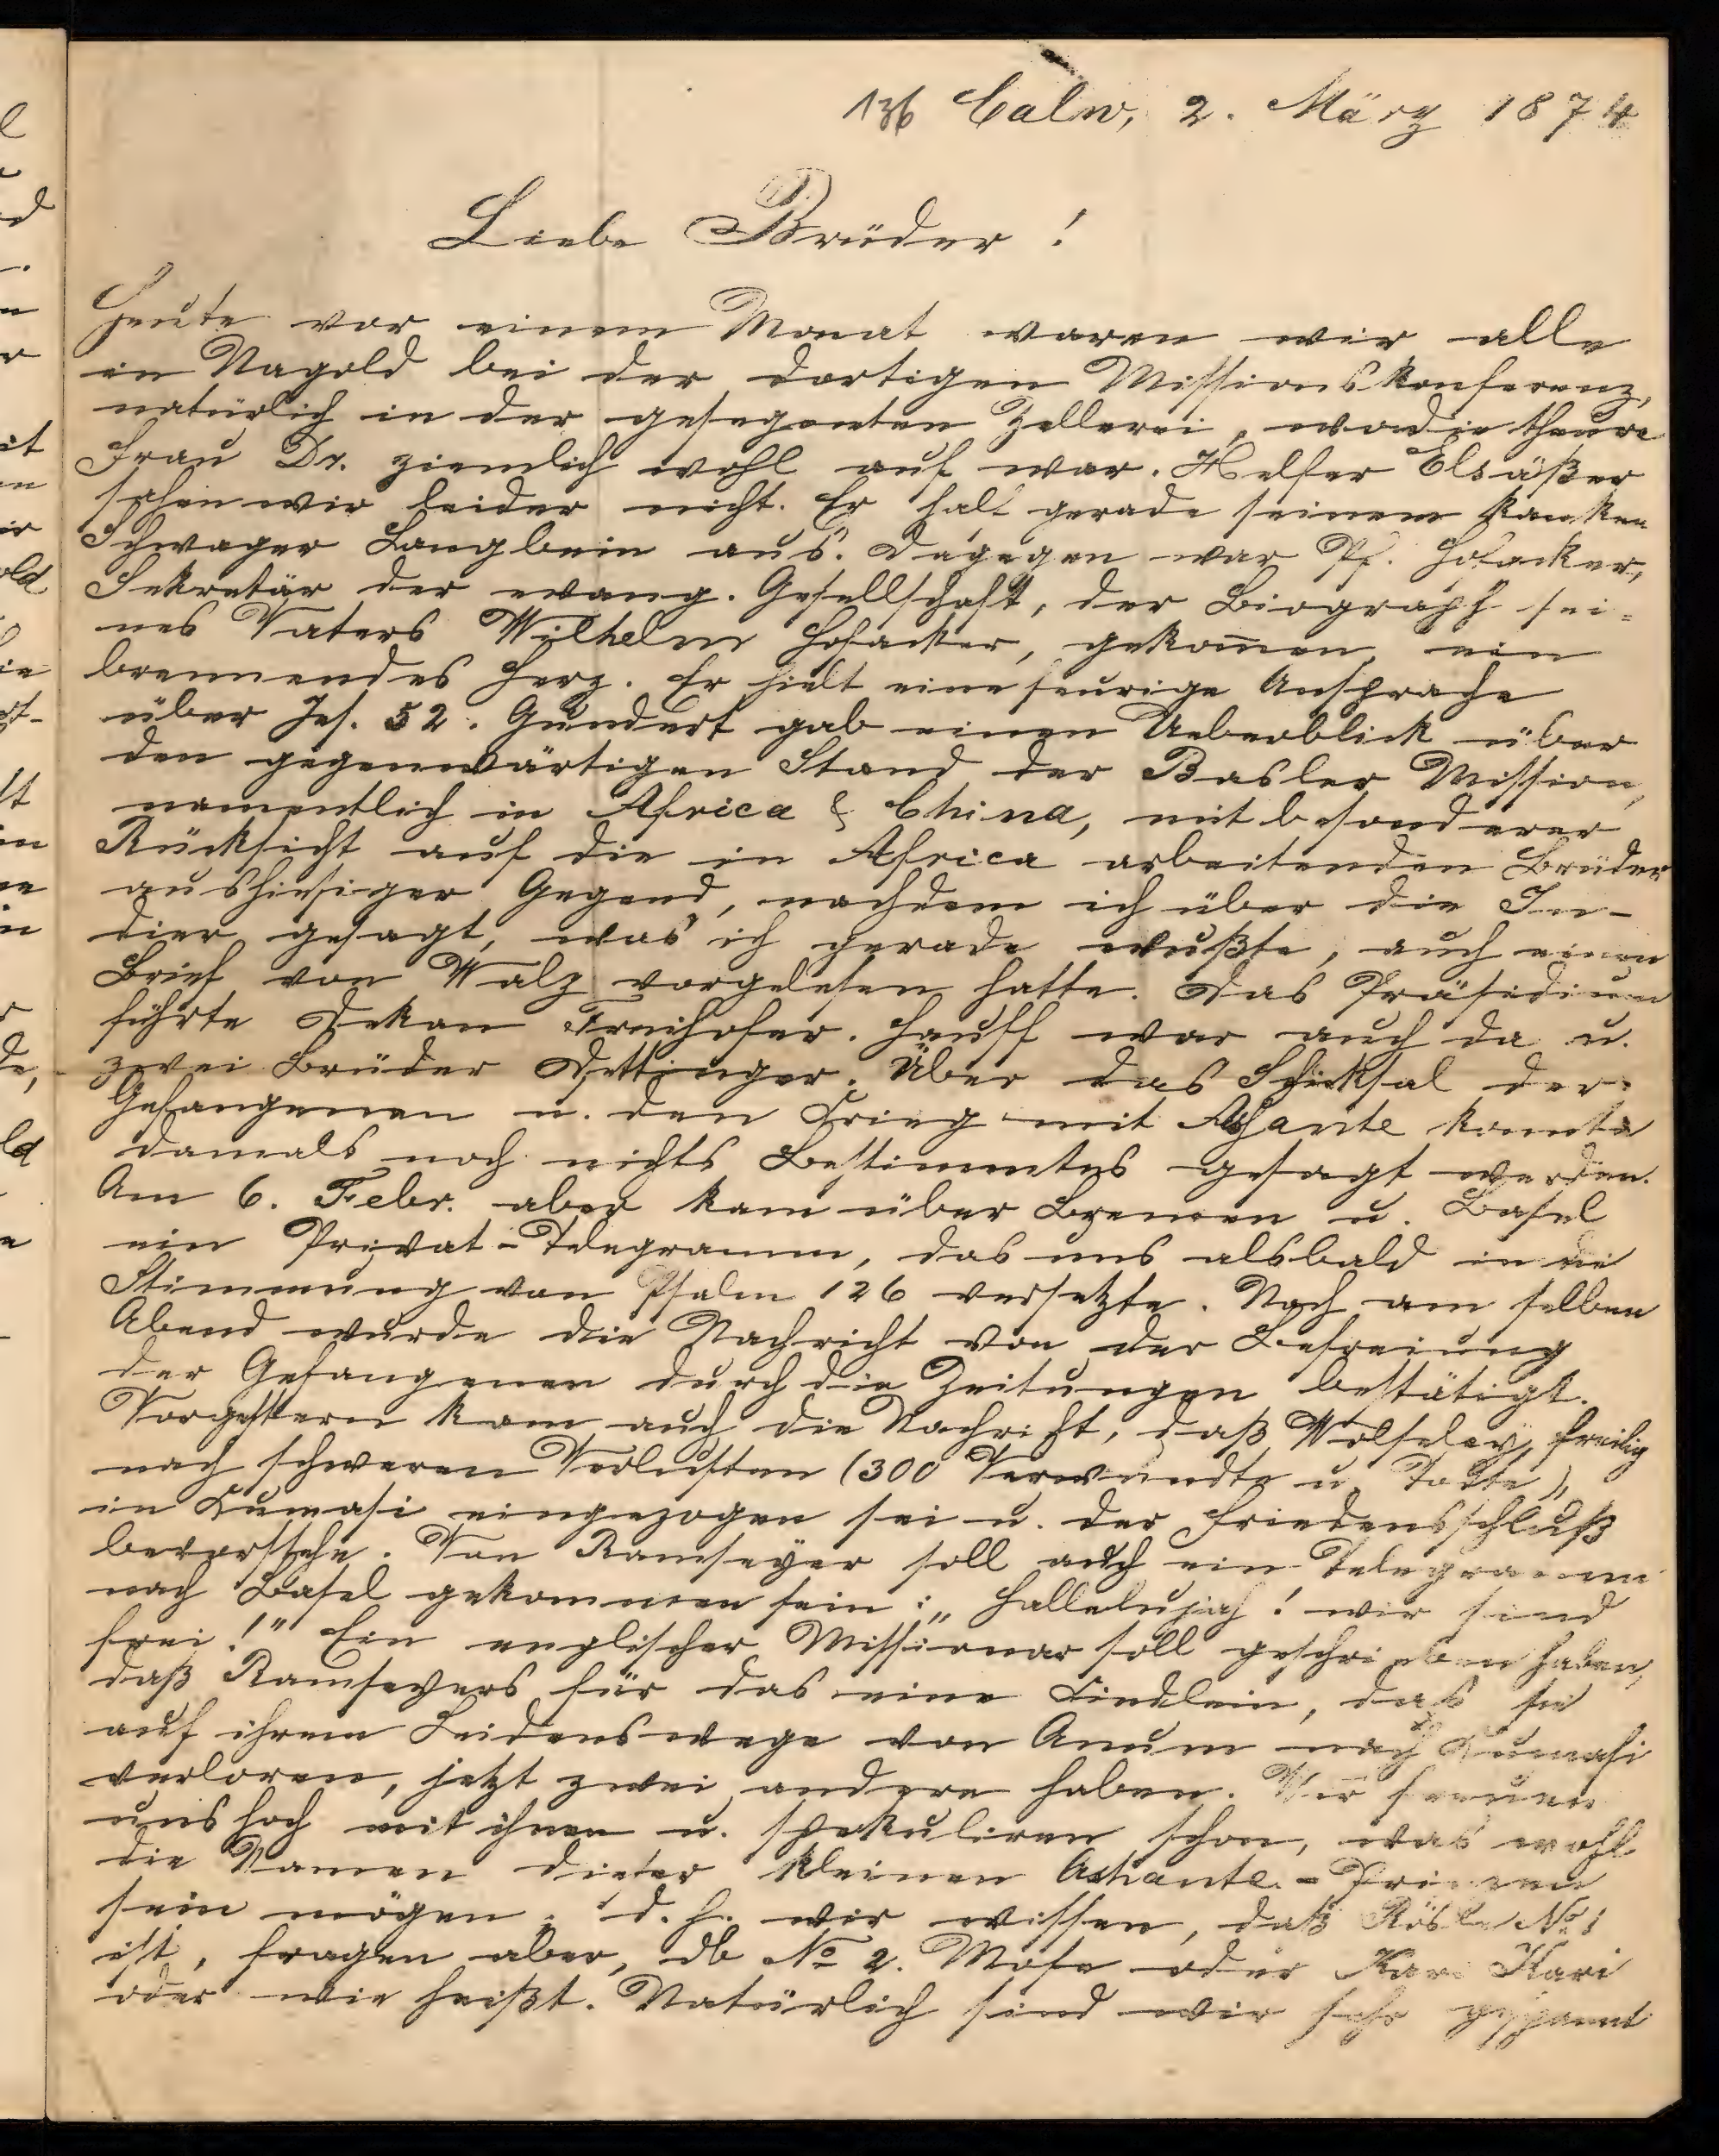 136 Calw, 2. März 1874
Liebe Brüder!
Heute vor einem Monat waren wir alle
in Nagold bei der dortigen Missionskonferenz,
natürlich in der gesegneten Zellerei, wo die theure
Frau Dr. ziemlich wohl auf war. Helfer Elsäßer
sahen wir leider nicht. Er half gerade seinem kranken
Schwager Langbein aus. Dagegen war Pf. Hofacker,
Sekretär der evang. Gesellschaft, der Biograph sei-
nes Vaters Wilhelm Hofacker, gekom̅en, ein
brennendes Herz. Er hielt eine feurige Ansprache
über Jes. 52. Gundert gab einen Ueberblick über
den gegenwärtigen Stand der Basler Mission,
namentlich in Africa & China, mit besonderer
Rücksicht auf die in Africa arbeitenden Brüder
aus hiesiger Gegend, nachdem ich über die In-
dier gesagt, was ich gerade wußte, auch einen
Brief von Walz vorgelesen hatte. Das Präsidium
führte Dekan Freihofer. Hauff war auch da u.
zwei Brüder Dettinger. Über das Schicksal der
Gefangenen u. den Krieg mit Asante konnte
damals noch nichts Bestimmtes gesagt werden.
Am 6. Febr. aber kam über Bremen u. Basel
ein Privat-Telegramm, das uns alsbald in die
Stimmung von Psalm 126 versetzte. Noch am selben
Abend wurde die Nachricht von der Befreiung
der Gefangenen durch die Zeitungen bestätigt.
Vorgestern kam auch die Nachricht, daß Wolseley, freilich
nach schweren Verlusten (300 Verwundte u. Todte),
in Kumasi eingezogen sei u. der Friedensschluß
bevorstehe. Von Ramseyer soll auch ein Telegramm
nach Basel gekommen sein: „Hallelujah! wir sind
frei!" Ein englischer Missionar soll geschrieben haben,
daß Ramseyers für das eine Kindlein, das sie
auf ihrem Leidenswege von Anum nach Kumasi
verloren, jetzt zwei andere haben. Wir freuen
uns hoch mit ihnen u. spekuliren schon, was wohl
die Namen dieser kleinen Ashante-Prinzen
sein mögen, d. h. wir wissen, daß Rösle No 1
ist, fragen aber, ob No 2. Mose oder Kari Kari
oder wie heißt. Natürlich sind wir sehr gespannt